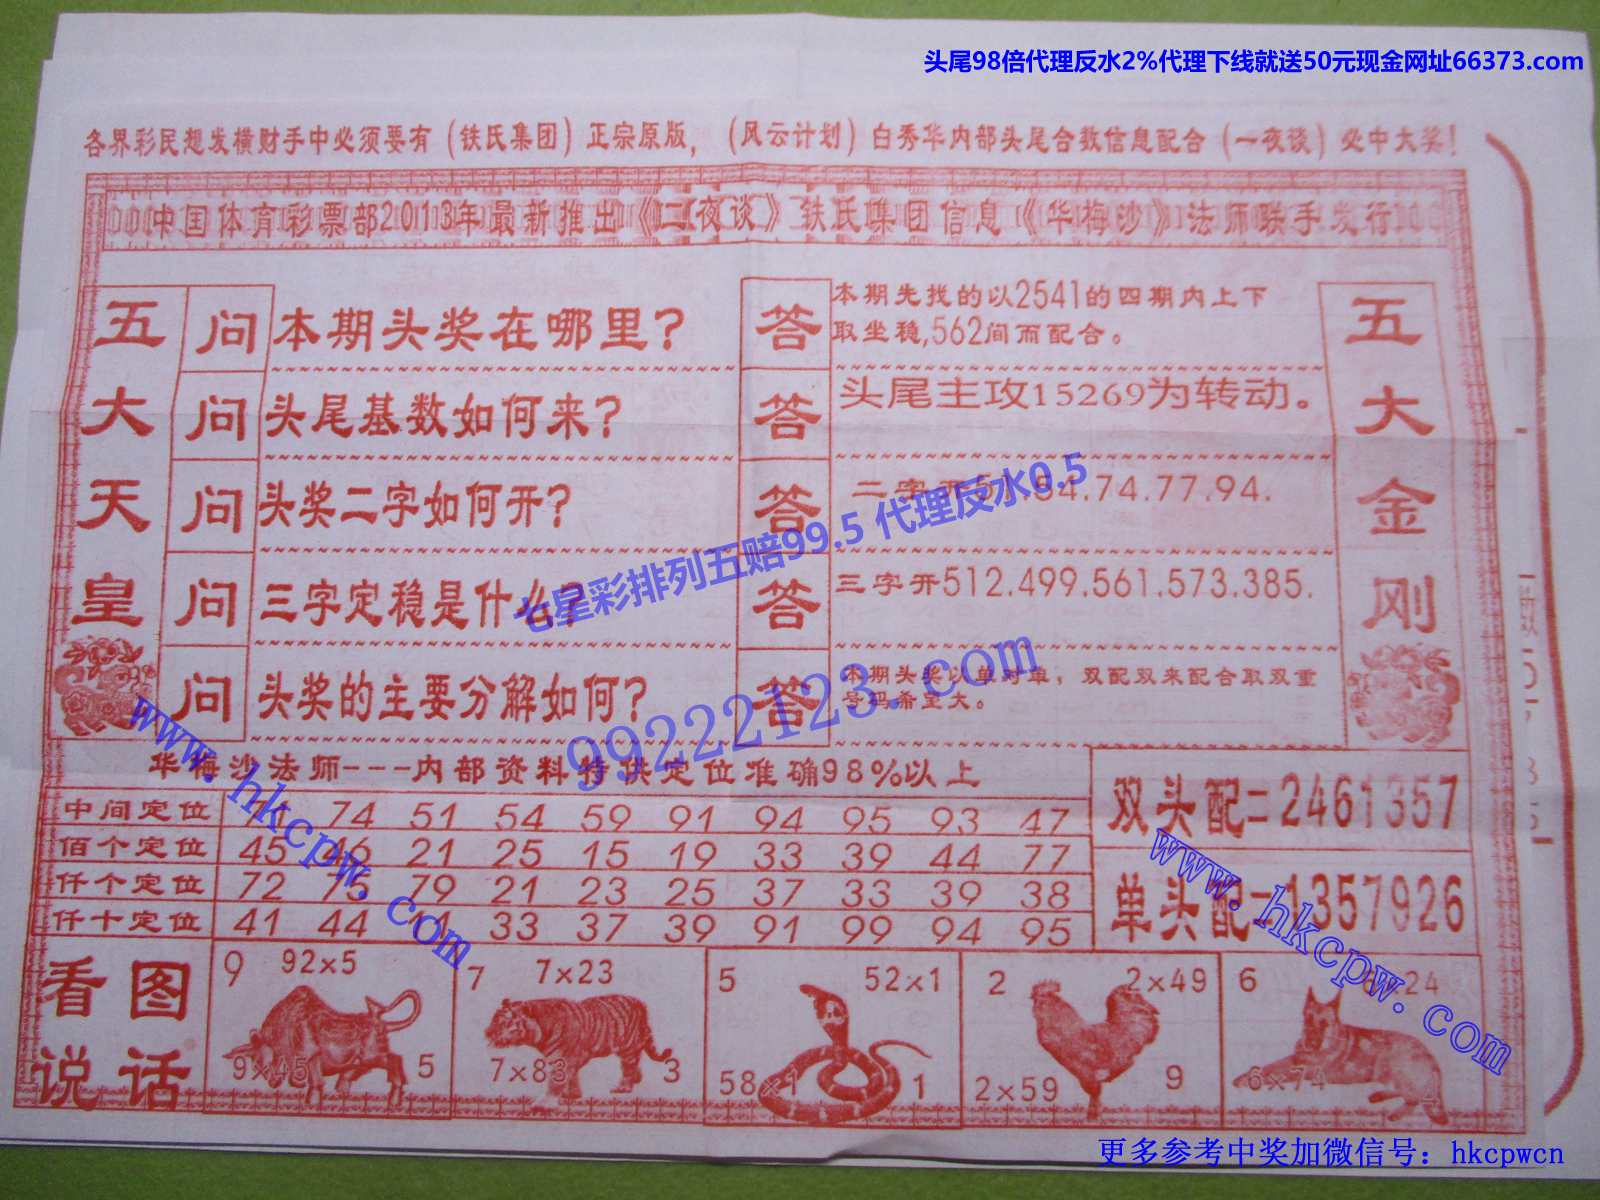 头尾98倍代理反水2%代理下线就送50元现金网址66373.com
各界彩民想发横财手中必须要有（铁氏集团）正宗原版，（风云计划）白秀华内部头尾合数信息配合（一夜谈）必中大奖！
中国体育彩票部2013年最新推出《二夜谈》铁氏集团信息《华梅沙》法师联手发行
五大天皇
问 本期头奖在哪里？
答 本期先找的以2541的四期内上下
取坐稳,562间而配合。
问 头尾基数如何来？
答 头尾主攻15269为转动。
问 头奖二字如何开？
答 二字开51.54.74.77.94.
问 三字定稳是什么？
答 三字开512.499.561.573.385.
问 头奖的主要分解如何？
答 本期头奖以单对单，双配双来配合取双重
号码希望大。
五大金刚
七星彩排列五赔99.5 代理反水0.5
99222123.com
www.hkcpw.com
华梅沙法师---内部资料特供定位准确98%以上
中间定位 74 51 54 59 91 94 95 93 47
佰个定位 45 46 21 25 15 19 33 39 44 77
仟个定位 72 75 79 21 23 25 37 33 39 38
仟十定位 41 44 33 37 39 91 99 94 95
双头配=2461357
单头配=1357926
www.hkcpw.com
看图说话
9 92×5
9×45 5
7 7×23
7×83 3
5 52×1
58×1 1
2 2×49
2×59 9
6 24
6×74
更多参考中奖加微信号：hkcpwcn